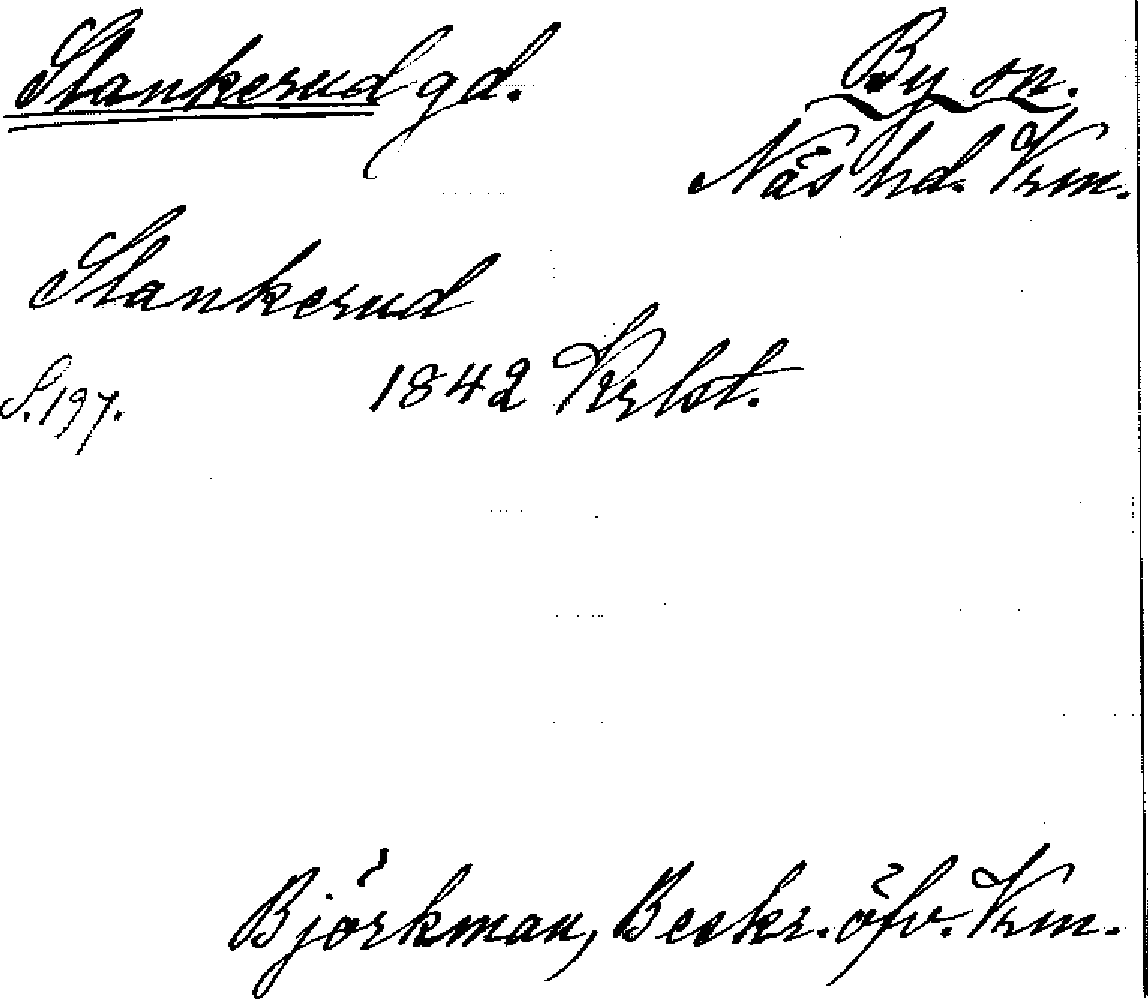 Stankerud gd. By sn.
Näs hd. Vrm.
Stankerud
S. 197. 1842 Krlst.
Björkman, Beskr. öfv. Vrm.